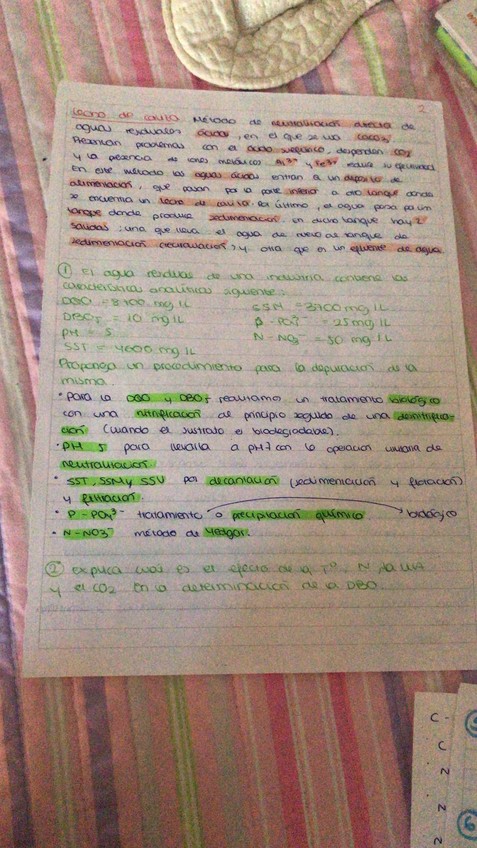 2
Lecho de caliza Método de neutralización directa de
aguas residuales ácidas, en el que se usa CaCO3
Presentan problemas con el ácido sulfúrico, desprenden CO2
y la presencia de iones metálicos Al3+ y Fe3+ reduce su efectividad
En este método las aguas ácidas entran a un depósito de
alimentación, que pasan por la parte inferior a otro tanque donde
se encuentra un lecho de caliza. Por último, el agua pasa por un
tanque donde produce sedimentación. En dicho tanque hay 2
salidas: una que lleva el agua de nuevo al tanque de
sedimentación (recirculación) y otra que es un efluente de agua.
① El agua residual de una industria contiene las
características analíticas siguiente:
DQO = 8100 mg/L SSM = 3700 mg/L
DBO5 = 10 mg/L P-PO4 3- = 25 mg/L
pH = 5 N-NO3- = 50 mg/L
SST = 4000 mg/L
Proponga un procedimiento para la depuración de la
misma.
• Para la DQO y DBO5 realizamos un tratamiento biológico
con una nitrificación al principio seguido de una desnitrifica-
ción (cuando el sustrato es biodegradable).
• pH 5 para llevarla a pH7 con la operación unitaria de
neutralización.
• SST, SSM y SSV por decantación (sedimentación y flotación)
y filtración.
• P-PO4 3- tratamiento o precipitación química biológico
• N-NO3- método de
② Explica cual es el efecto de la Tº, N, la
y el CO2 en la determinación de la DBO.
C-
C
N
N
N
6